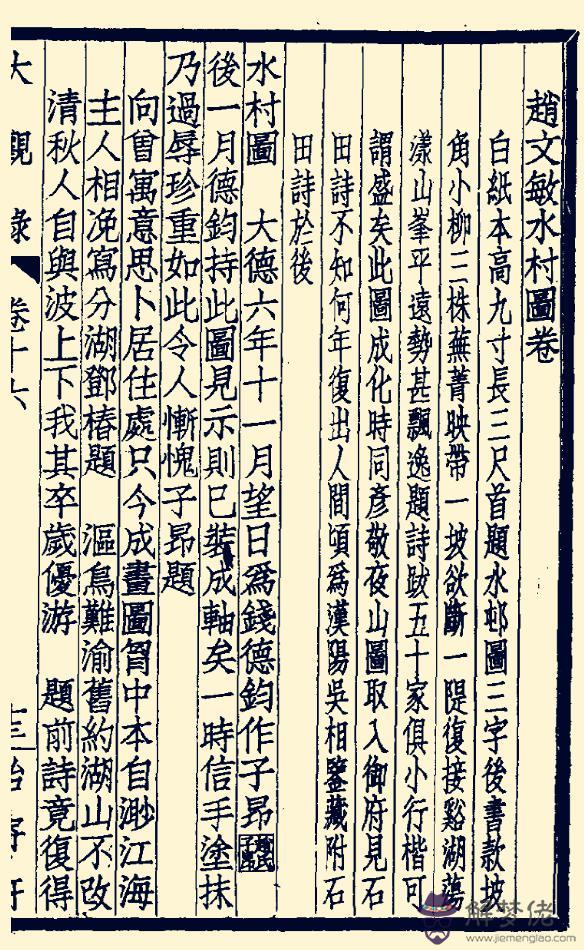 趙文敏水村圖卷
白紙本高九寸長三尺首題水邨圖三字後書款坡
角小柳三株蕪菁映帶一坡欲斷一隄復接谿湖蕩
漾山峯平遠勢甚飄逸題詩跋五十家俱小行楷可
謂盛矣此圖成化時同彥敬夜山圖取入御府見石
田詩不知何年復出人間頃爲漢陽吳相鑒藏附石
田詩於後
水村圖 大德六年十一月望日爲錢德鈞作子昂
後一月德鈞持此圖見示則已裝成軸矣一時信手塗抹
乃過辱珍重如此令人慚愧子昂題
向曾寓意思卜居住處只今成畫圖胷中本自渺江海
主人相况寫分湖鄧椿題 漚鳥難渝舊約湖山不改
清秋人自與波上下我其卒歲優游 題前詩竟復得
大觀錄 卷十六
解梦佬
www.jiemenglao.com